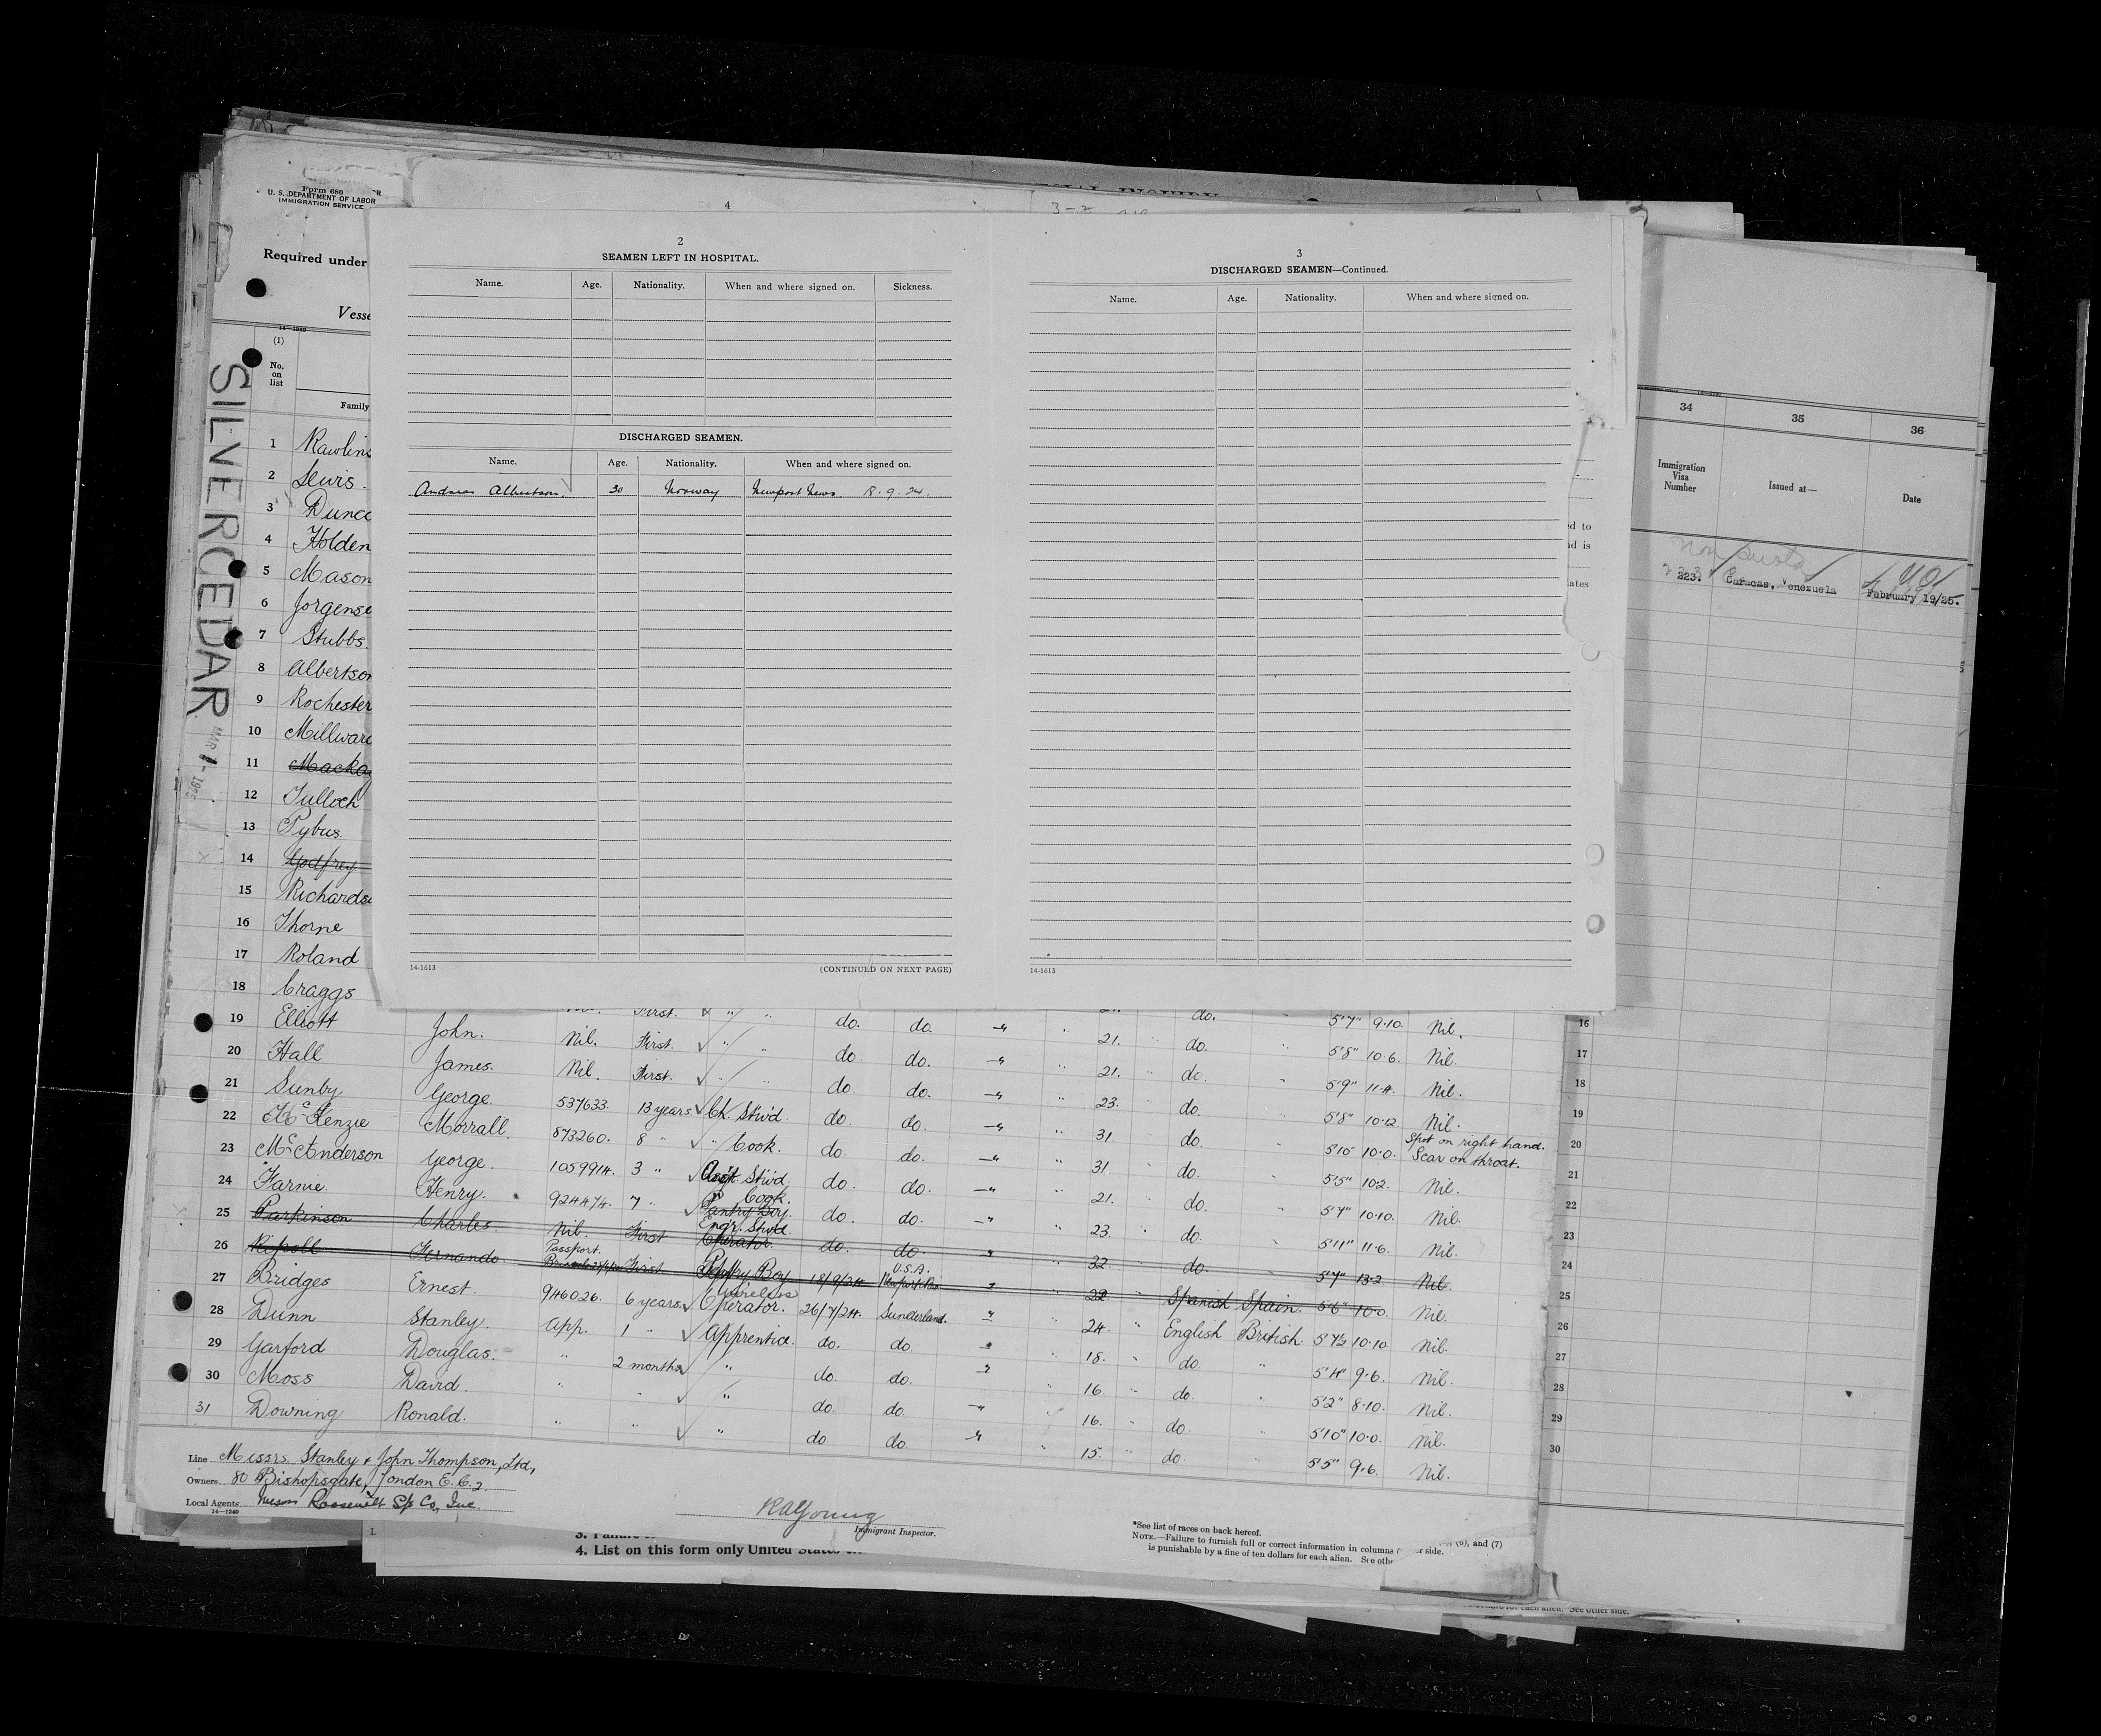 Form 680
U. S. DEPARTMENT OF LABOR
IMMIGRATION SERVICE
Required under
Vesse
14—1240
(1)
No.
on
list
Family
SILVERCEDAR
MAR - 1925
1 Rawlins
2 Lewis.
3 Dunc
4 Holden
5 Mason
6 Jorgense
7 Stubbs.
8 Albertson
9 Rochester
10 Millward
11 Mackay
12 Tulloch
13 Pybus
14 Godfrey
15 Richards
16 Thorne
17 Roland
18 Craggs
4
3-2
2
SEAMEN LEFT IN HOSPITAL.
Name. Age. Nationality. When and where signed on. Sickness.
DISCHARGED SEAMEN.
Name. Age. Nationality. When and where signed on.
Andreas Albertson 30 Norway Newport News 8.9.24.
14-1613
(CONTINUED ON NEXT PAGE)
3
DISCHARGED SEAMEN—Continued.
Name. Age. Nationality. When and where signed on.
14-1613
ed to
nd is
tates
34 35 36
Immigration
Visa
Number
Issued at—
Date
223. Caracas, Venezuela February 19/25.
First. " " do. do. 21. do. 5'7" 9.10. Nil.
19 Elliott John. Nil. First. " " do. do. 21. do. 5'8" 10.6. Nil.
20 Hall James. Nil. First. " " do. do. 21. do. 5'9" 11.4. Nil.
21 Sunby George. 537633. 13 years. Ch. Stw'd. do. do. 23. do. 5'8" 10.12. Nil.
22 McKenzie Morrall. 873260. 8 " " Cook. do. do. 31. do. 5'10" 10.0. Spot on right hand. Scar on throat.
23 McAnderson George. 1059914. 3 " Ass't. Stw'd. do. do. 31 do. 5'5" 10.2. Nil.
24 Farnie Henry. 924474. 7 " Cook. Pantry Boy. do. do. 21. do. 5'7" 10.10. Nil.
25 Parkinson Charles. Nil. First Engr. Stwd. Operator. do. do. 23. do. 5'11" 11.6. Nil.
26 Ripoll Fernando. Passport. First Boy 18/9/24 U.S.A. 32. do. 5'7" 13.2 Nil.
27 Bridges Ernest. 946026. 6 years. Wireless Operator. 26/7/24. Sunderland. 22. Spanish Spain. 5'6" 10.0. Nil.
28 Dunn Stanley. App. 1 " Apprentice. do. do. 24. English British. 5'7½ 10.10 Nil.
29 Garford Douglas. " 2 months " do. do. 18. do. 5'4" 9.6. Nil.
30 Moss David. " " " do. do. 16. do. 5'2" 8.10. Nil.
31 Downing Ronald. " " " do. do. 16. do. 5'10" 10.0. Nil.
15. do. 5'5" 9.6. Nil.
16
17
18
19
20
21
22
23
24
25
26
27
28
29
30
Line Messrs. Stanley & John Thompson, Ltd.,
Owners 80 Bishopsgate, London E.C.2
Local Agents Roosevelt S/S Co, Inc.
14—1240
RAYoung
Immigrant Inspector.
*See list of races on back hereof.
NOTE.—Failure to furnish full or correct information in columns (6), and (7)
is punishable by a fine of ten dollars for each alien. See othe r side.
4. List on this form only United States
for each alien. See other side.